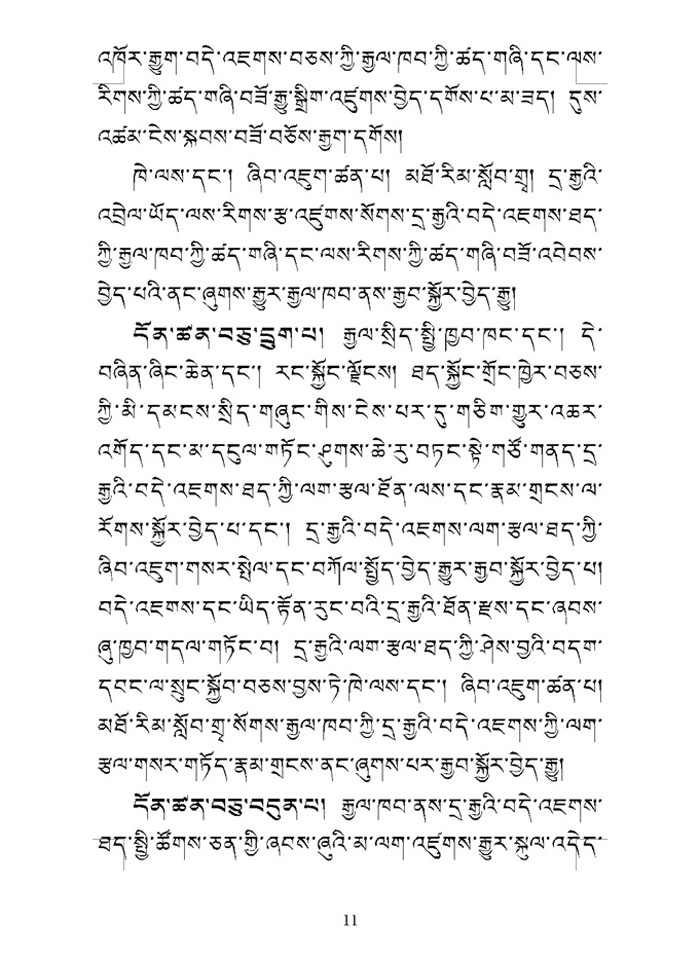 འཁོར་རྒྱུག་བདེ་འཇགས་བཅས་ཀྱི་རྒྱལ་ཁབ་ཀྱི་ཚད་གཞི་དང་ལས་
རིགས་ཀྱི་ཚད་གཞི་བཟོ་རྒྱུ་སྒྲིག་འཛུགས་བྱེད་དགོས་པ་མ་ཟད། དུས་
འཚམ་ངེས་སྐབས་བཟོ་བཅོས་རྒྱག་དགོས།
ཁེ་ལས་དང་། ཞིབ་འཇུག་ཚན་པ། མཐོ་རིམ་སློབ་གྲྭ། དྲ་རྒྱའི་
འབྲེལ་ཡོད་ལས་རིགས་རྩ་འཛུགས་སོགས་དྲ་རྒྱའི་བདེ་འཇགས་ཐད་
ཀྱི་རྒྱལ་ཁབ་ཀྱི་ཚད་གཞི་དང་ལས་རིགས་ཀྱི་ཚད་གཞི་བཟོ་འབེབས་
བྱེད་པའི་ནང་ཞུགས་རྒྱུར་རྒྱལ་ཁབ་ནས་རྒྱབ་སྐྱོར་བྱེད་རྒྱུ།
དོན་ཚན་བཅུ་དྲུག་པ། རྒྱལ་སྲིད་སྤྱི་ཁྱབ་ཁང་དང་། དེ་
བཞིན་ཞིང་ཆེན་དང་། རང་སྐྱོང་ལྗོངས། ཐད་སྐྱོང་གྲོང་ཁྱེར་བཅས་
ཀྱི་མི་དམངས་སྲིད་གཞུང་གིས་ངེས་པར་དུ་གཅིག་གྱུར་འཆར་
འགོད་དང་མ་དངུལ་གཏོང་ཤུགས་ཆེ་རུ་བཏང་སྟེ་གཙོ་གནད་དྲ་
རྒྱའི་བདེ་འཇགས་ཐད་ཀྱི་ལག་རྩལ་ཐོན་ལས་དང་རྣམ་གྲངས་ལ་
རོགས་སྐྱོར་བྱེད་པ་དང་། དྲ་རྒྱའི་བདེ་འཇགས་ལག་རྩལ་ཐད་ཀྱི་
ཞིབ་འཇུག་གསར་སྤེལ་དང་བཀོལ་སྤྱོད་བྱེད་རྒྱུར་རྒྱབ་སྐྱོར་བྱེད་པ།
བདེ་འཇགས་དང་ཡིད་རྟོན་རུང་བའི་དྲ་རྒྱའི་ཐོན་རྫས་དང་ཞབས་
ཞུ་ཁྱབ་གདལ་གཏོང་བ། དྲ་རྒྱའི་ལག་རྩལ་ཐད་ཀྱི་ཤེས་བྱའི་བདག་
དབང་ལ་སྲུང་སྐྱོབ་བཅས་བྱས་ཏེ་ཁེ་ལས་དང་། ཞིབ་འཇུག་ཚན་པ།
མཐོ་རིམ་སློབ་གྲྭ་སོགས་རྒྱལ་ཁབ་ཀྱི་དྲ་རྒྱའི་བདེ་འཇགས་ཀྱི་ལག་
རྩལ་གསར་གཏོད་རྣམ་གྲངས་ནང་ཞུགས་པར་རྒྱབ་སྐྱོར་བྱེད་རྒྱུ།
དོན་ཚན་བཅུ་བདུན་པ། རྒྱལ་ཁབ་ནས་དྲ་རྒྱའི་བདེ་འཇགས་
ཐད་སྤྱི་ཚོགས་ཅན་གྱི་ཞབས་ཞུའི་མ་ལག་འཛུགས་རྒྱུར་སྐུལ་འདེད་
11